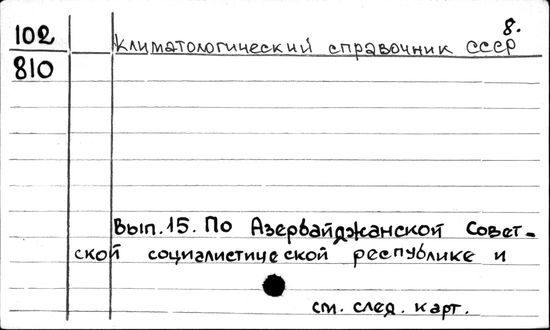 8.
102
810
Климатологический справочник СССР
Вып. 15. По Азербайджанской Совет-
ской социалистической республике и
см. след. карт.